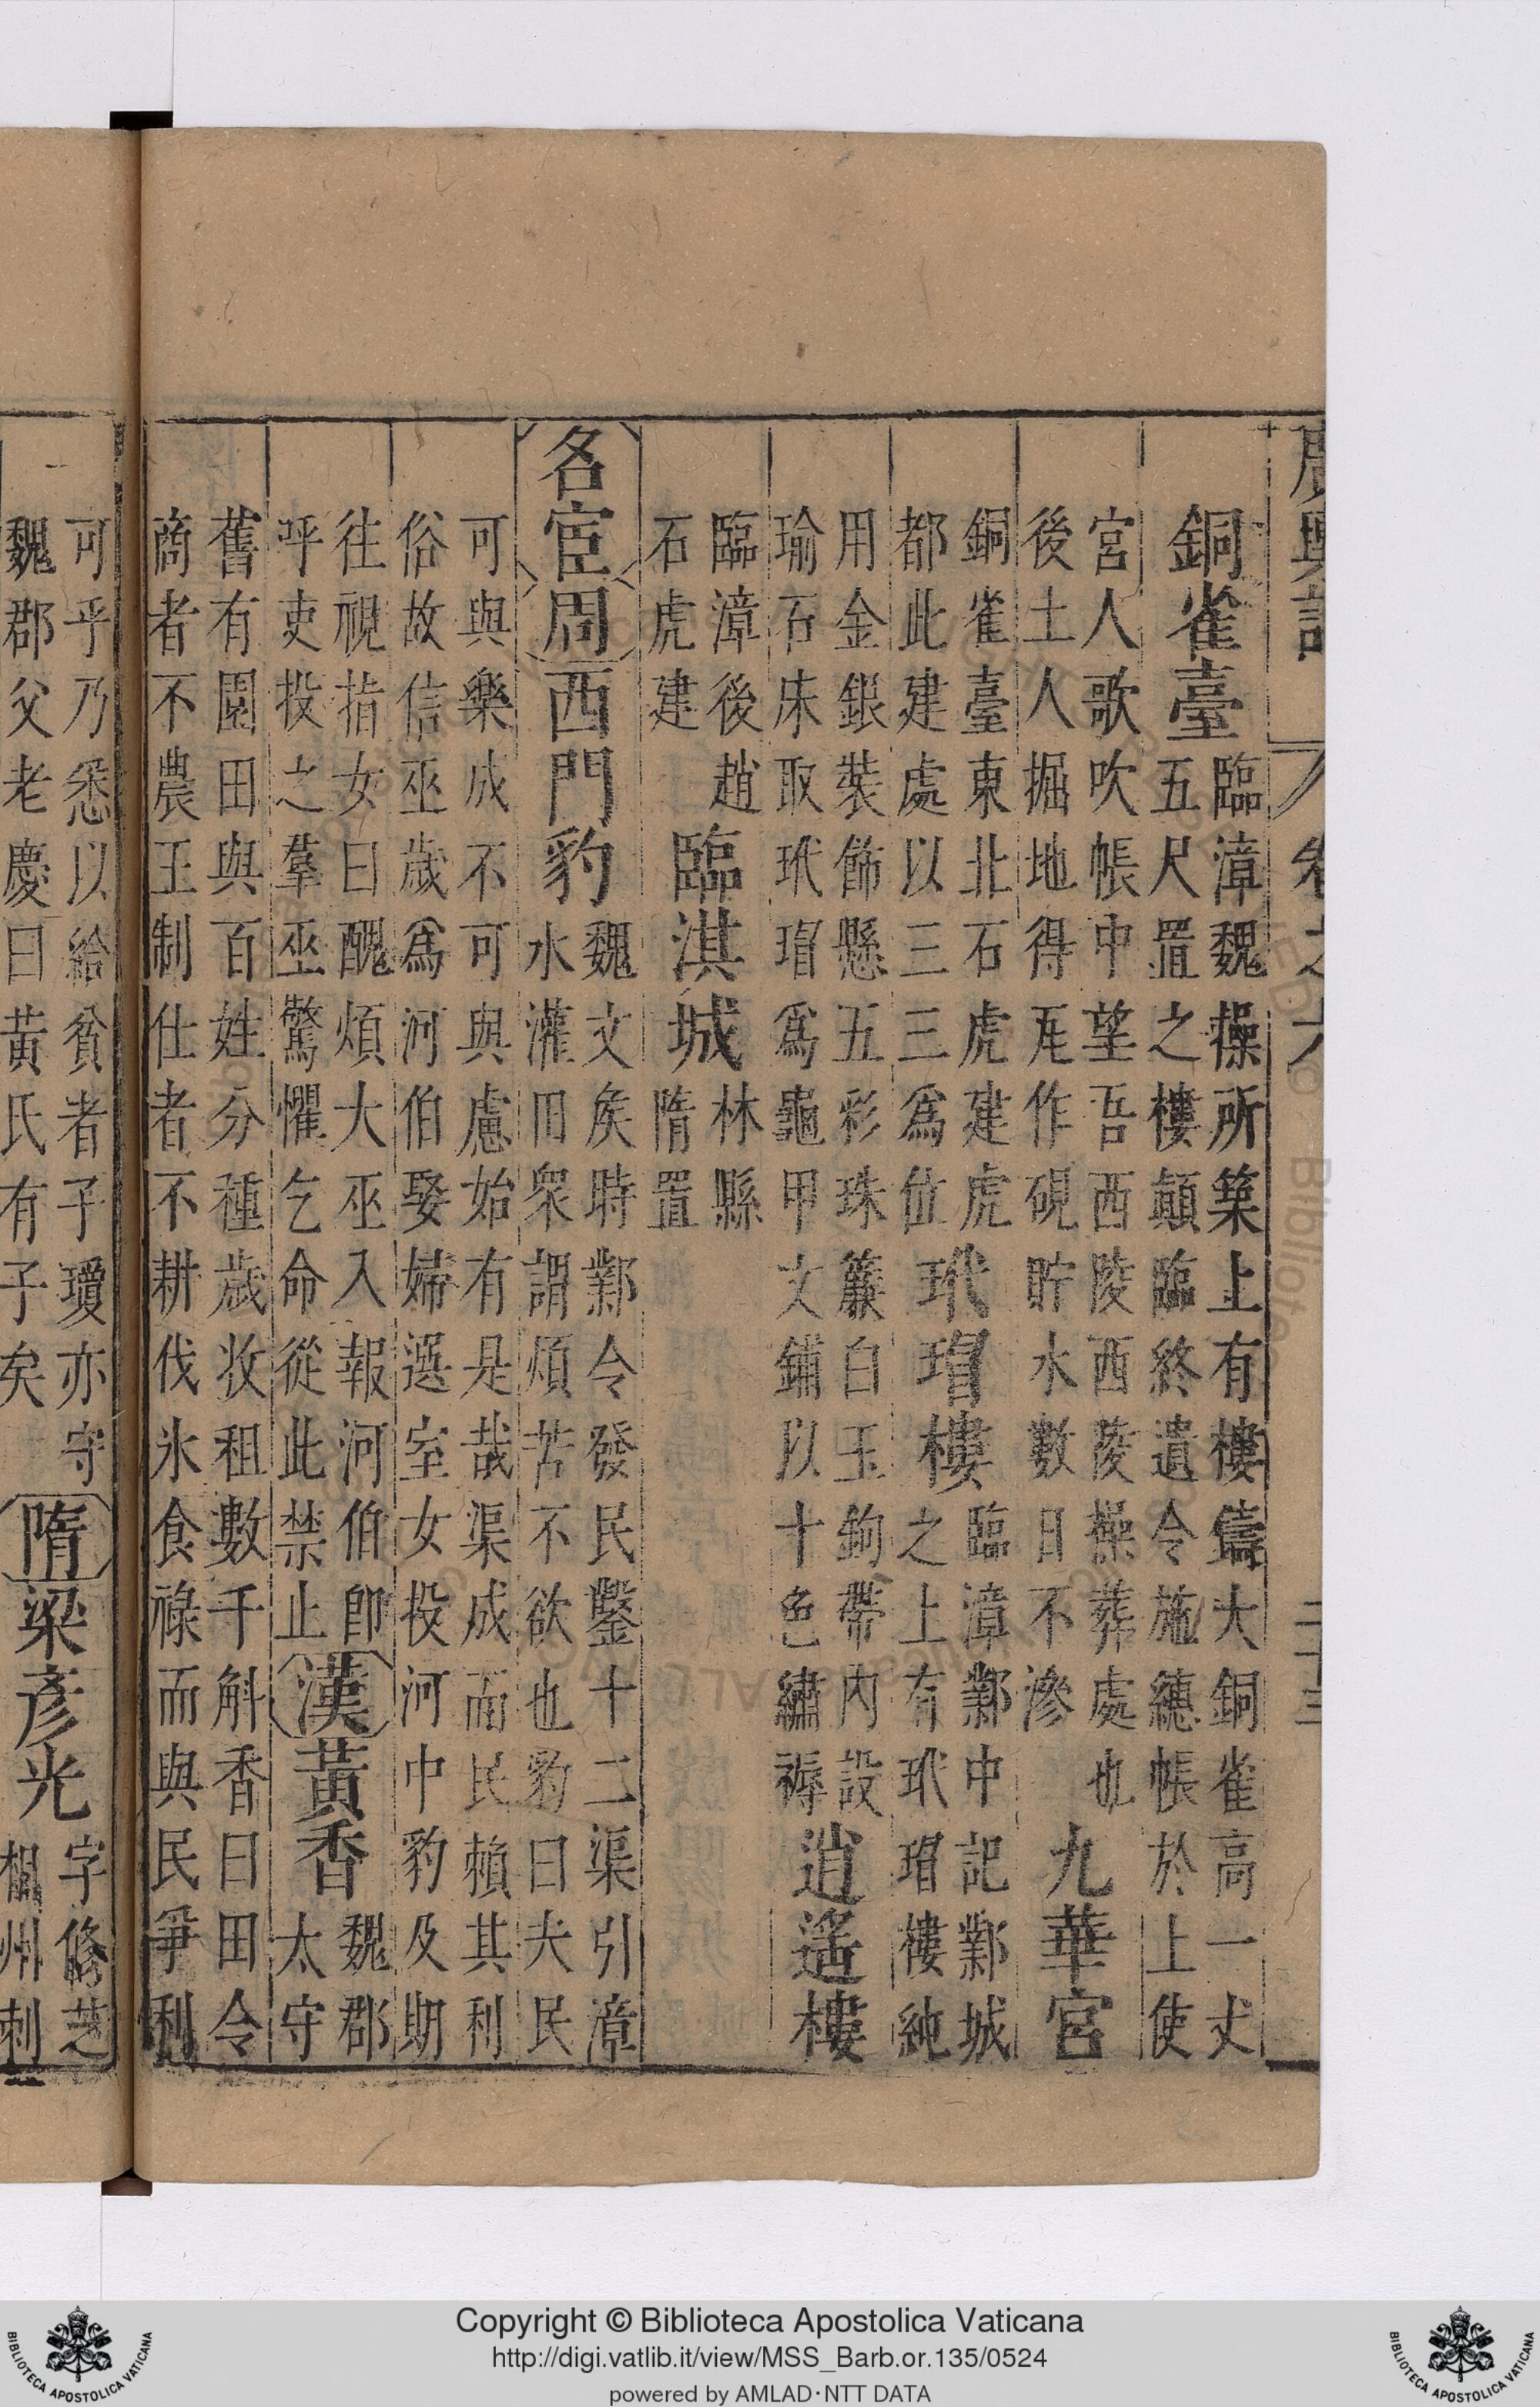 廣輿記 卷之六 二十三
銅雀臺
臨漳魏操所築上有樓鑄大銅雀高一丈
五尺置之樓顛臨終遺令施繐帳於上使
宮人歌吹帳中望吾西陵西陵操葬處也
後土人掘地得瓦作硯貯水數日不滲
九華宮
銅雀臺東北石虎建虎
都此建處以三三爲位
玳瑁樓
臨漳鄴中記鄴城
之上有玳瑁樓純
用金銀裝飾懸五彩珠簾白玉鉤帶內設
瑜石床取玳瑁爲龜甲文鋪以十色繡褥
逍遙樓
臨漳後趙
石虎建
臨淇城
林縣
隋置
名宦周西門豹
魏文矦時鄴令發民鑿十二渠引漳
水灌田衆謂煩苦不欲也豹曰夫民
可與樂成不可與慮始有是哉渠成而民賴其利
俗故信巫歲爲河伯娶婦選室女投河中豹及期
往視指女曰醜煩大巫入報河伯卽
呼吏投之羣巫驚懼乞命從此禁止
漢黃香
魏郡
太守
舊有園田與百姓分種歲收租數千斛香曰田令
商者不農王制仕者不耕伐氷食祿而與民爭利
可乎乃悉以給貧者子瓊亦守
魏郡父老慶曰黃氏有子矣
隋梁彥光
字修芝
相州刺
Copyright © Biblioteca Apostolica Vaticana
http://digi.vatlib.it/view/MSS_Barb.or.135/0524
powered by AMLAD·NTT DATA
BIBLIOTECA APOSTOLICA VATICANA
BIBLIOTECA APOSTOLICA VATICANA